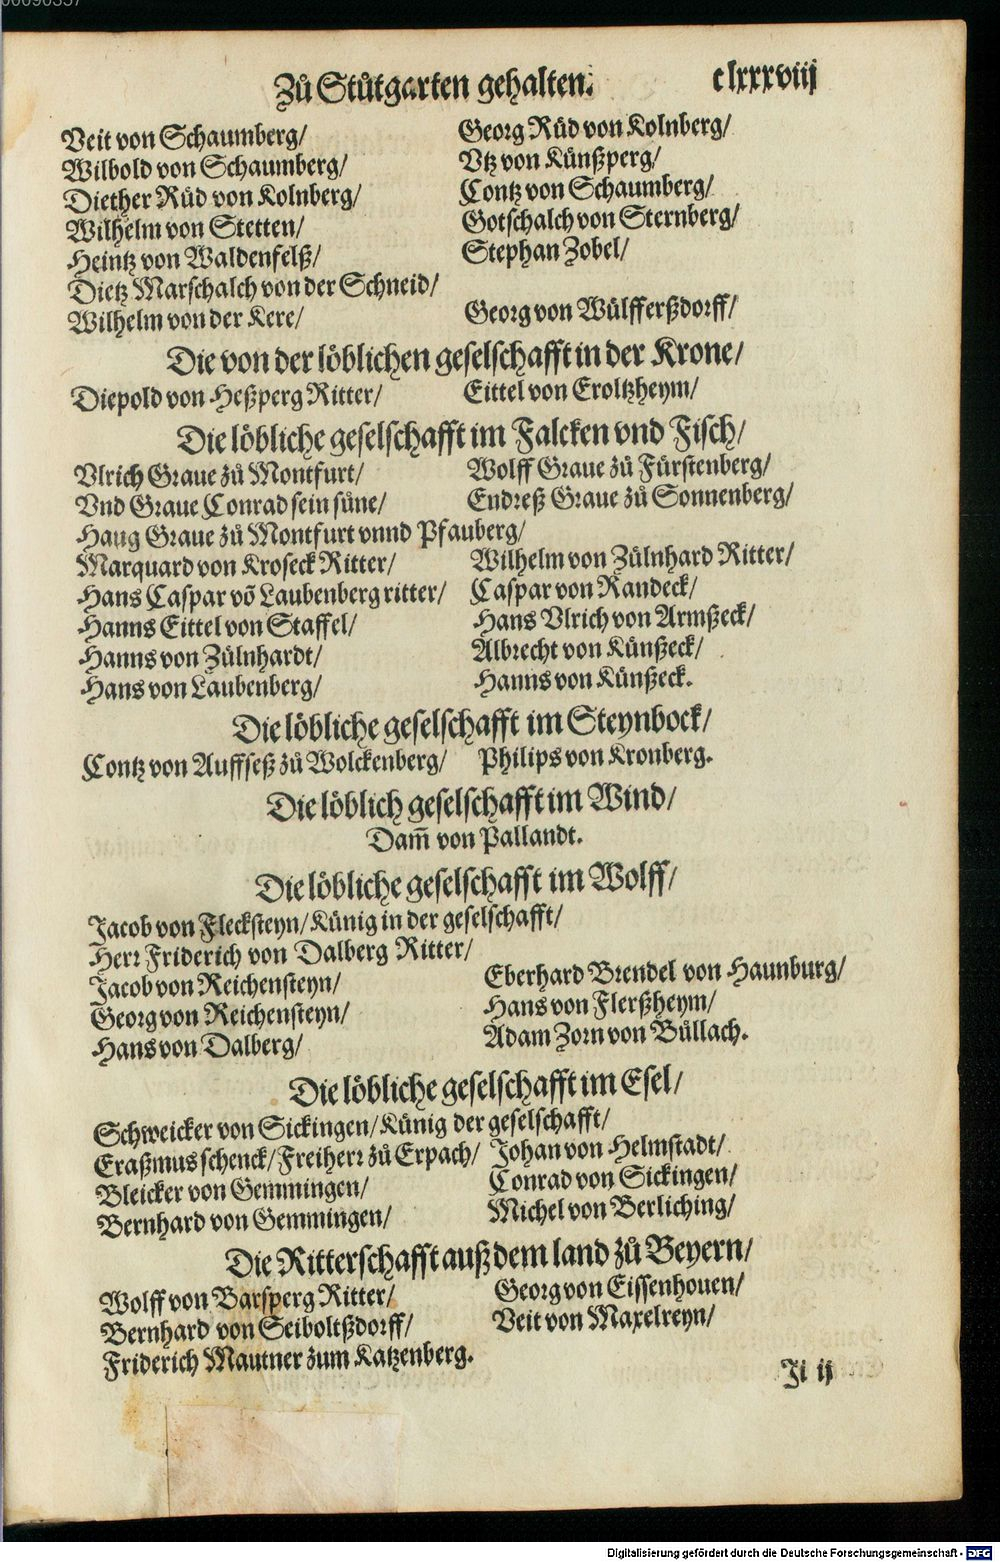 00090357
Zů Stůtgarten gehalten. clxxxviij
Veit von Schaumberg/ Georg Rüd von Kolnberg/
Wilbold von Schaumberg/ Vtz von Künßperg/
Diether Rüd von Kolnberg/ Contz von Schaumberg/
Wilhelm von Stetten/ Gotschalch von Sternberg/
Heintz von Waldenfelß/ Stephan Zobel/
Dietz Marschalch von der Schneid/
Wilhelm von der Kere/ Georg von Wülfferßdorff/
Die von der löblichen geselschafft in der Krone/
Diepold von Heßperg Ritter/ Eittel von Eroltzheym/
Die löbliche geselschafft im Falcken vnd Fisch/
Vlrich Graue zů Montfurt/ Wolff Graue zů Fürstenberg/
Vnd Graue Conrad sein süne/ Endreß Graue zů Sonnenberg/
Haug Graue zů Montfurt vnnd Pfauberg/
Marquard von Kroseck Ritter/ Wilhelm von Zülnhard Ritter/
Hans Caspar vō Laubenberg ritter/ Caspar von Randeck/
Hanns Eittel von Staffel/ Hans Vlrich von Armßeck/
Hanns von Zülnhardt/ Albrecht von Künßeck/
Hans von Laubenberg/ Hanns von Künßeck.
Die löbliche geselschafft im Steynbock/
Contz von Auffseß zů Wolckenberg/ Philips von Kronberg.
Die löblich geselschafft im Wind/
Dam̄ von Pallandt.
Die löbliche geselschafft im Wolff/
Jacob von Flecksteyn/ Künig in der geselschafft/
Herr Friderich von Dalberg Ritter/
Jacob von Reichensteyn/ Eberhard Brendel von Haunburg/
Georg von Reichensteyn/ Hans von Flerßheym/
Hans von Dalberg/ Adam Zorn von Büllach.
Die löbliche geselschafft im Esel/
Schweicker von Sickingen/ Künig der geselschafft/
Eraßmus schenck/ Freiherr zů Erpach/ Johan von Helmstadt/
Bleicker von Gemmingen/ Conrad von Sickingen/
Bernhard von Gemmingen/ Michel von Berliching/
Die Ritterschafft auß dem land zů Beyern/
Wolff von Barsperg Ritter/ Georg von Eissenhouen/
Bernhard von Seiboltßdorff/ Veit von Maxelreyn/
Friderich Mautner zum Katzenberg.
Ji ij
Digitalisierung gefördert durch die Deutsche Forschungsgemeinschaft - DFG